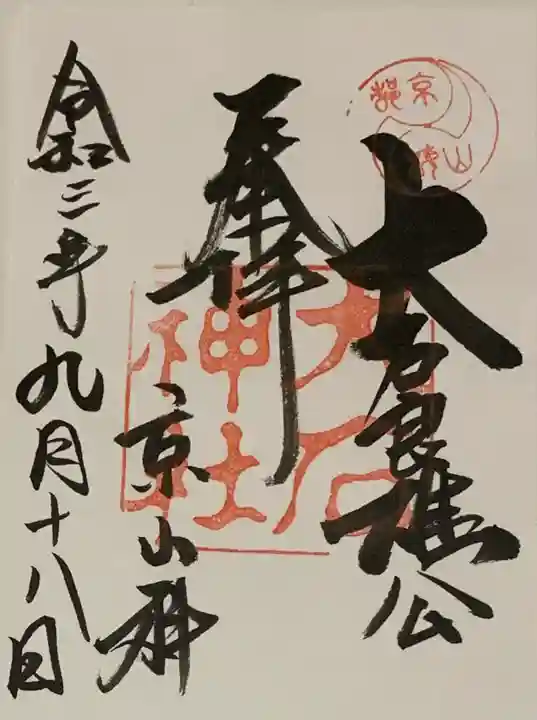 大石良雄公
奉拝
京山科
令和三年九月十八日
大石
神社